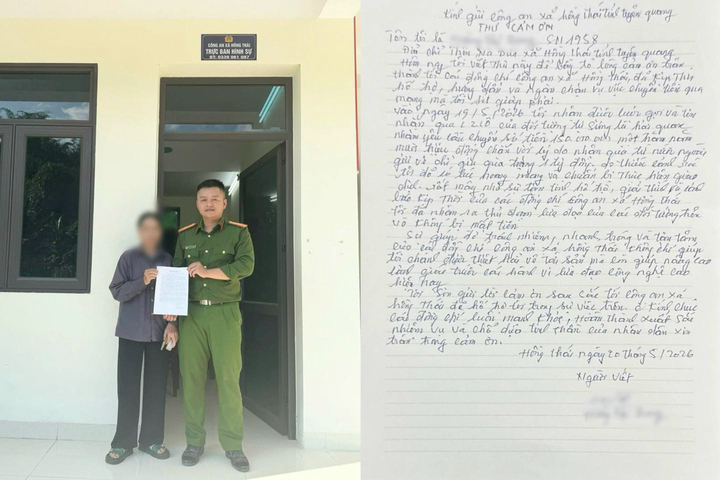 CÔNG AN XÃ HỒNG THÁI
TRỰC BAN HÌNH SỰ
Kính gửi công an xã hồng Thái tỉnh tuyên quang
THƯ CẢM ƠN
Tên tôi là SN 1958
Địa chỉ Thôn Nà Đứa xã Hồng thái tỉnh tuyên quang
Hôm nay tôi viết Thư này để bày tỏ lòng cảm ơn chân
thành tới các đồng chí công an xã Hồng Thái, đã Kịp Thời
hỗ trợ, hướng dẫn và Ngăn chặn vụ việc chuyển tiền qua
mạng mà tôi gặp phải.
vào ngày 19/5/2026 tôi nhận được cuộc gọi và tin
nhắn qua của đối tượng tự Xưng là hải quan
yêu cầu chuyển số tiền 150.000.000 một trăm năm
mươi triệu đồng chẵn với lý do nhận quà từ nước ngoài
gửi về trị giá quà tặng 1 tỷ đồng. do thiếu cảnh giác
tôi đã hoang mang và chuẩn bị Thực hiện giao
dịch. rất may nhờ sự tận tình hỗ trợ, giải thích
Kịp Thời của các đồng chí công an xã Hồng Thái
Tôi đã nhận ra thủ đoạn lừa đảo của các đối tượng trên
và Không bị mất tiền.
Sự giúp đỡ trách nhiệm, nhanh trong và tận tâm
của các đồng chí công an xã hồng Thái không chỉ giúp
tôi tránh được thiệt hại về tài sản mà còn giúp nâng cao
tinh giác trước các hành vi lừa đảo công nghệ cao
hiện nay.
Tôi Xin gửi lời cảm ơn sâu sắc tới công an xã
hồng Thái đã hỗ trợ tôi trong sự việc trên. Kính chúc
các đồng chí luôn mạnh khỏe, Hoàn thành xuất sắc
nhiệm vụ và chỗ dựa tinh thần của nhân dân xin
trân trọng cảm ơn.
Hồng thái ngày 20 tháng 5/2026
Người viết